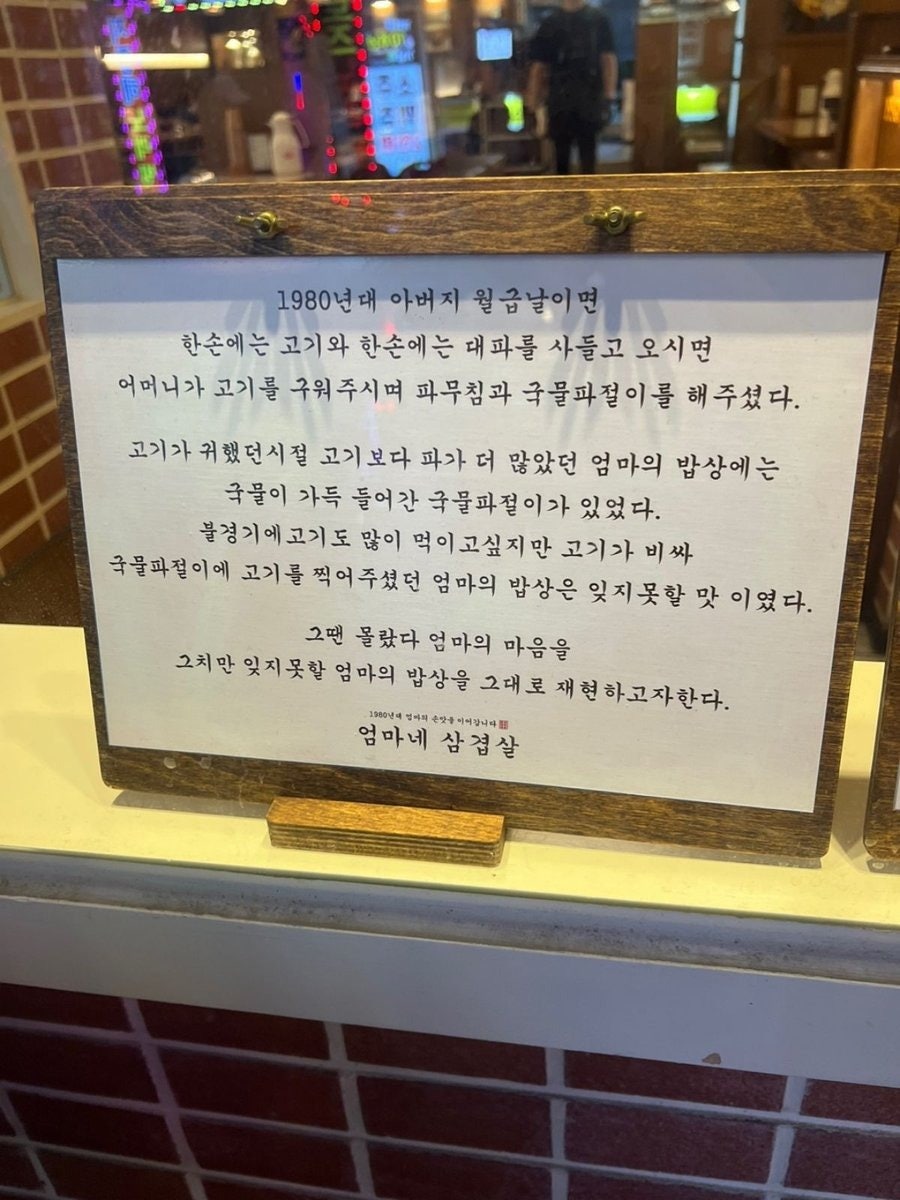 1980년대 아버지 월급날이면
한손에는 고기와 한손에는 대파를 사들고 오시면
어머니가 고기를 구워주시며 파무침과 국물파절이를 해주셨다.
고기가 귀했던시절 고기보다 파가 더 많았던 엄마의 밥상에는
국물이 가득 들어간 국물파절이가 있었다.
불경기에고기도 많이 먹이고싶지만 고기가 비싸
국물파절이에 고기를 찍어주셨던 엄마의 밥상은 잊지못할 맛 이였다.
그땐 몰랐다 엄마의 마음을
그치만 잊지못할 엄마의 밥상을 그대로 재현하고자한다.
1980년대 엄마의 손맛을 이어갑니다
엄마네 삼겹살